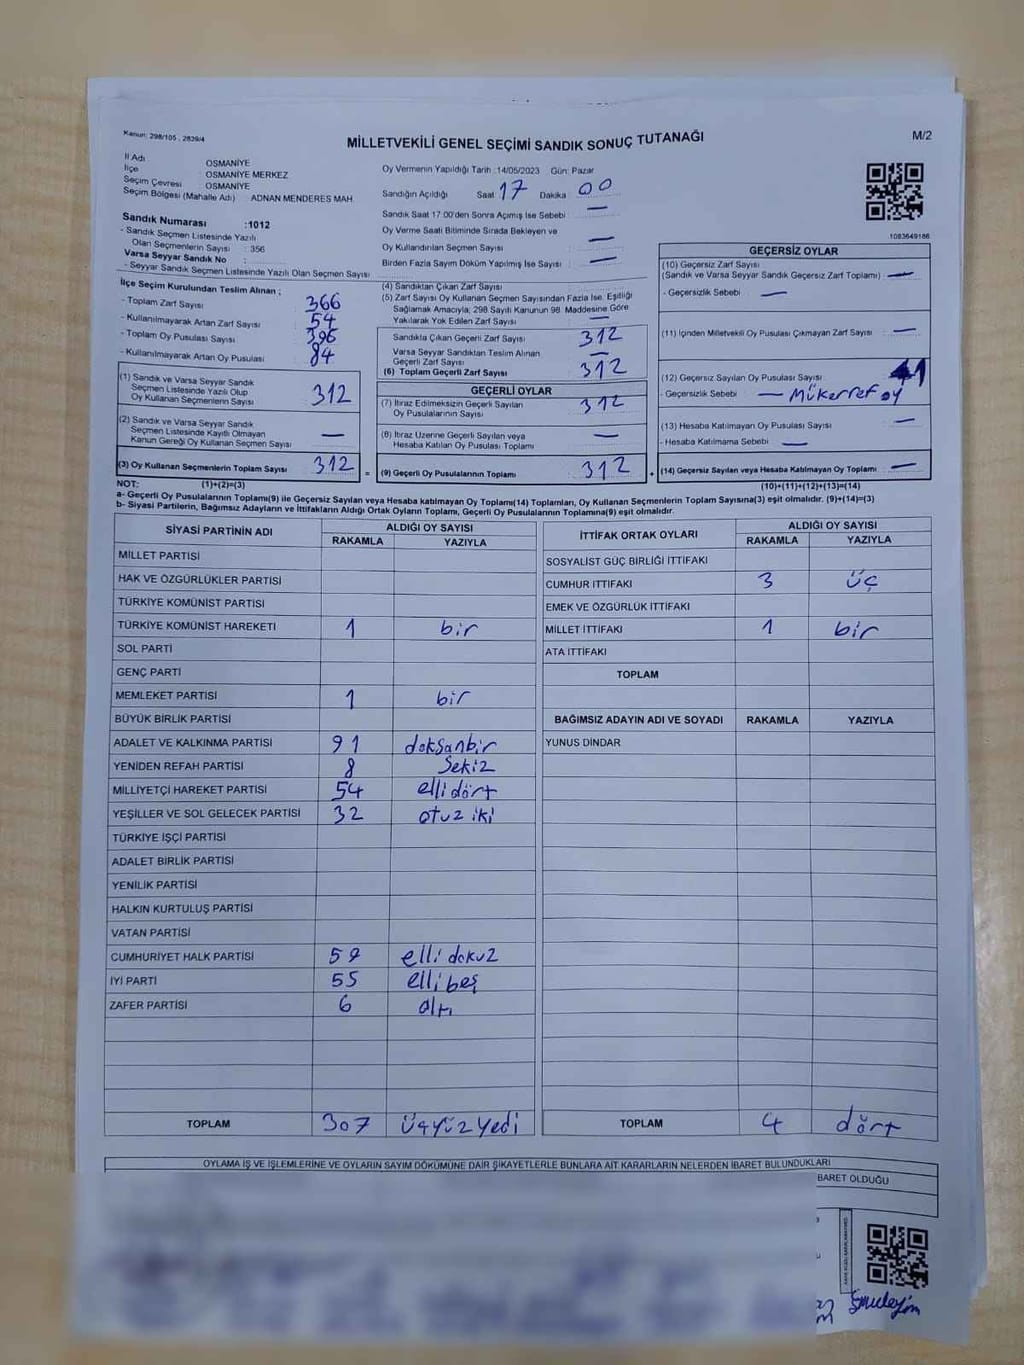 Kanun: 298/105 , 2839/4
M/2
MİLLETVEKİLİ GENEL SEÇİMİ SANDIK SONUÇ TUTANAĞI
İl Adı OSMANİYE
İlçe OSMANİYE MERKEZ
Seçim Çevresi OSMANİYE
Seçim Bölgesi (Mahalle Adı) ADNAN MENDERES MAH.
Sandık Numarası :1012
- Sandık Seçmen Listesinde Yazılı
Olan Seçmenlerin Sayısı : 356
Varsa Seyyar Sandık No :
- Seyyar Sandık Seçmen Listesinde Yazılı Olan Seçmen Sayısı :
Oy Vermenin Yapıldığı Tarih :14/05/2023 Gün: Pazar
Sandığın Açıldığı Saat 17 Dakika 00
Sandık Saat 17:00'den Sonra Açımış İse Sebebi —
Oy Verme Saati Bitiminde Sırada Bekleyen ve
Oy Kullandırılan Seçmen Sayısı —
Birden Fazla Sayım Döküm Yapılmış İse Sayısı —
1093649186
İlçe Seçim Kurulundan Teslim Alınan ;
- Toplam Zarf Sayısı 366
- Kullanılmayarak Artan Zarf Sayısı 54
- Toplam Oy Pusulası Sayısı 396
- Kullanılmayarak Artan Oy Pusulası 84
(1) Sandık ve Varsa Seyyar Sandık
Seçmen Listesinde Yazılı Olup
Oy Kullanan Seçmenlerin Sayısı 312
(2) Sandık ve Varsa Seyyar Sandık
Seçmen Listesinde Kayıtlı Olmayan
Kanun Gereği Oy Kullanan Seçmen Sayısı —
(3) Oy Kullanan Seçmenlerin Toplam Sayısı 312 =
(4) Sandıktan Çıkan Zarf Sayısı
(5) Zarf Sayısı Oy Kullanan Seçmen Sayısından Fazla İse, Eşitliği
Sağlamak Amacıyla; 298 Sayılı Kanunun 98. Maddesine Göre
Yakılarak Yok Edilen Zarf Sayısı —
Sandıkta Çıkan Geçerli Zarf Sayısı 312
Varsa Seyyar Sandıktan Teslim Alınan
Geçerli Zarf Sayısı —
(6) Toplam Geçerli Zarf Sayısı 312
GEÇERLİ OYLAR
(7) İtiraz Edilmeksizin Geçerli Sayılan
Oy Pusulalarının Sayısı 312
(8) İtiraz Üzerine Geçerli Sayılan veya
Hesaba Katılan Oy Pusulası Toplamı —
(9) Geçerli Oy Pusulalarının Toplamı 312 +
GEÇERSİZ OYLAR
(10) Geçersiz Zarf Sayısı
(Sandık ve Varsa Seyyar Sandık Geçersiz Zarf Toplamı) —
- Geçersizlik Sebebi —
(11) İçinden Milletvekili Oy Pusulası Çıkmayan Zarf Sayısı —
(12) Geçersiz Sayılan Oy Pusulası Sayısı
- Geçersizlik Sebebi — Mükerrer oy
(13) Hesaba Katılmayan Oy Pusulası Sayısı —
- Hesaba Katılmama Sebebi —
(14) Geçersiz Sayılan veya Hesaba Katılmayan Oy Toplamı —
NOT: (1)+(2)=(3) (10)+(11)+(12)+(13)=(14)
a- Geçerli Oy Pusulalarının Toplamı(9) ile Geçersiz Sayılan veya Hesaba katılmayan Oy Toplamı(14) Toplamları, Oy Kullanan Seçmenlerin Toplam Sayısına(3) eşit olmalıdır. (9)+(14)=(3)
b- Siyasi Partilerin, Bağımsız Adayların ve İttifakların Aldığı Ortak Oyların Toplamı, Geçerli Oy Pusulalarının Toplamına(9) eşit olmalıdır.
SİYASİ PARTİNİN ADI ALDIĞI OY SAYISI
RAKAMLA YAZIYLA
MİLLET PARTİSİ
HAK VE ÖZGÜRLÜKLER PARTİSİ
TÜRKİYE KOMÜNİST PARTİSİ
TÜRKİYE KOMÜNİST HAREKETİ 1 bir
SOL PARTİ
GENÇ PARTİ
MEMLEKET PARTİSİ 1 bir
BÜYÜK BİRLİK PARTİSİ
ADALET VE KALKINMA PARTİSİ 91 doksanbir
YENİDEN REFAH PARTİSİ 8 Sekiz
MİLLİYETÇİ HAREKET PARTİSİ 54 elli dört
YEŞİLLER VE SOL GELECEK PARTİSİ 32 otuz iki
TÜRKİYE İŞÇİ PARTİSİ
ADALET BİRLİK PARTİSİ
YENİLİK PARTİSİ
HALKIN KURTULUŞ PARTİSİ
VATAN PARTİSİ
CUMHURİYET HALK PARTİSİ 59 elli dokuz
İYİ PARTİ 55 elli beş
ZAFER PARTİSİ 6 altı
TOPLAM 307 üçyüz yedi
İTTİFAK ORTAK OYLARI ALDIĞI OY SAYISI
RAKAMLA YAZIYLA
SOSYALİST GÜÇ BİRLİĞİ İTTİFAKI
CUMHUR İTTİFAKI 3 üç
EMEK VE ÖZGÜRLÜK İTTİFAKI
MİLLET İTTİFAKI 1 bir
ATA İTTİFAKI
TOPLAM
BAĞIMSIZ ADAYIN ADI VE SOYADI RAKAMLA YAZIYLA
YUNUS DİNDAR
TOPLAM 4 dört
OYLAMA İŞ VE İŞLEMLERİNE VE OYLARIN SAYIM DÖKÜMÜNE DAİR ŞİKAYETLERLE BUNLARA AİT KARARLARIN NELERDEN İBARET BULUNDUKLARI
BARET OLDUĞU